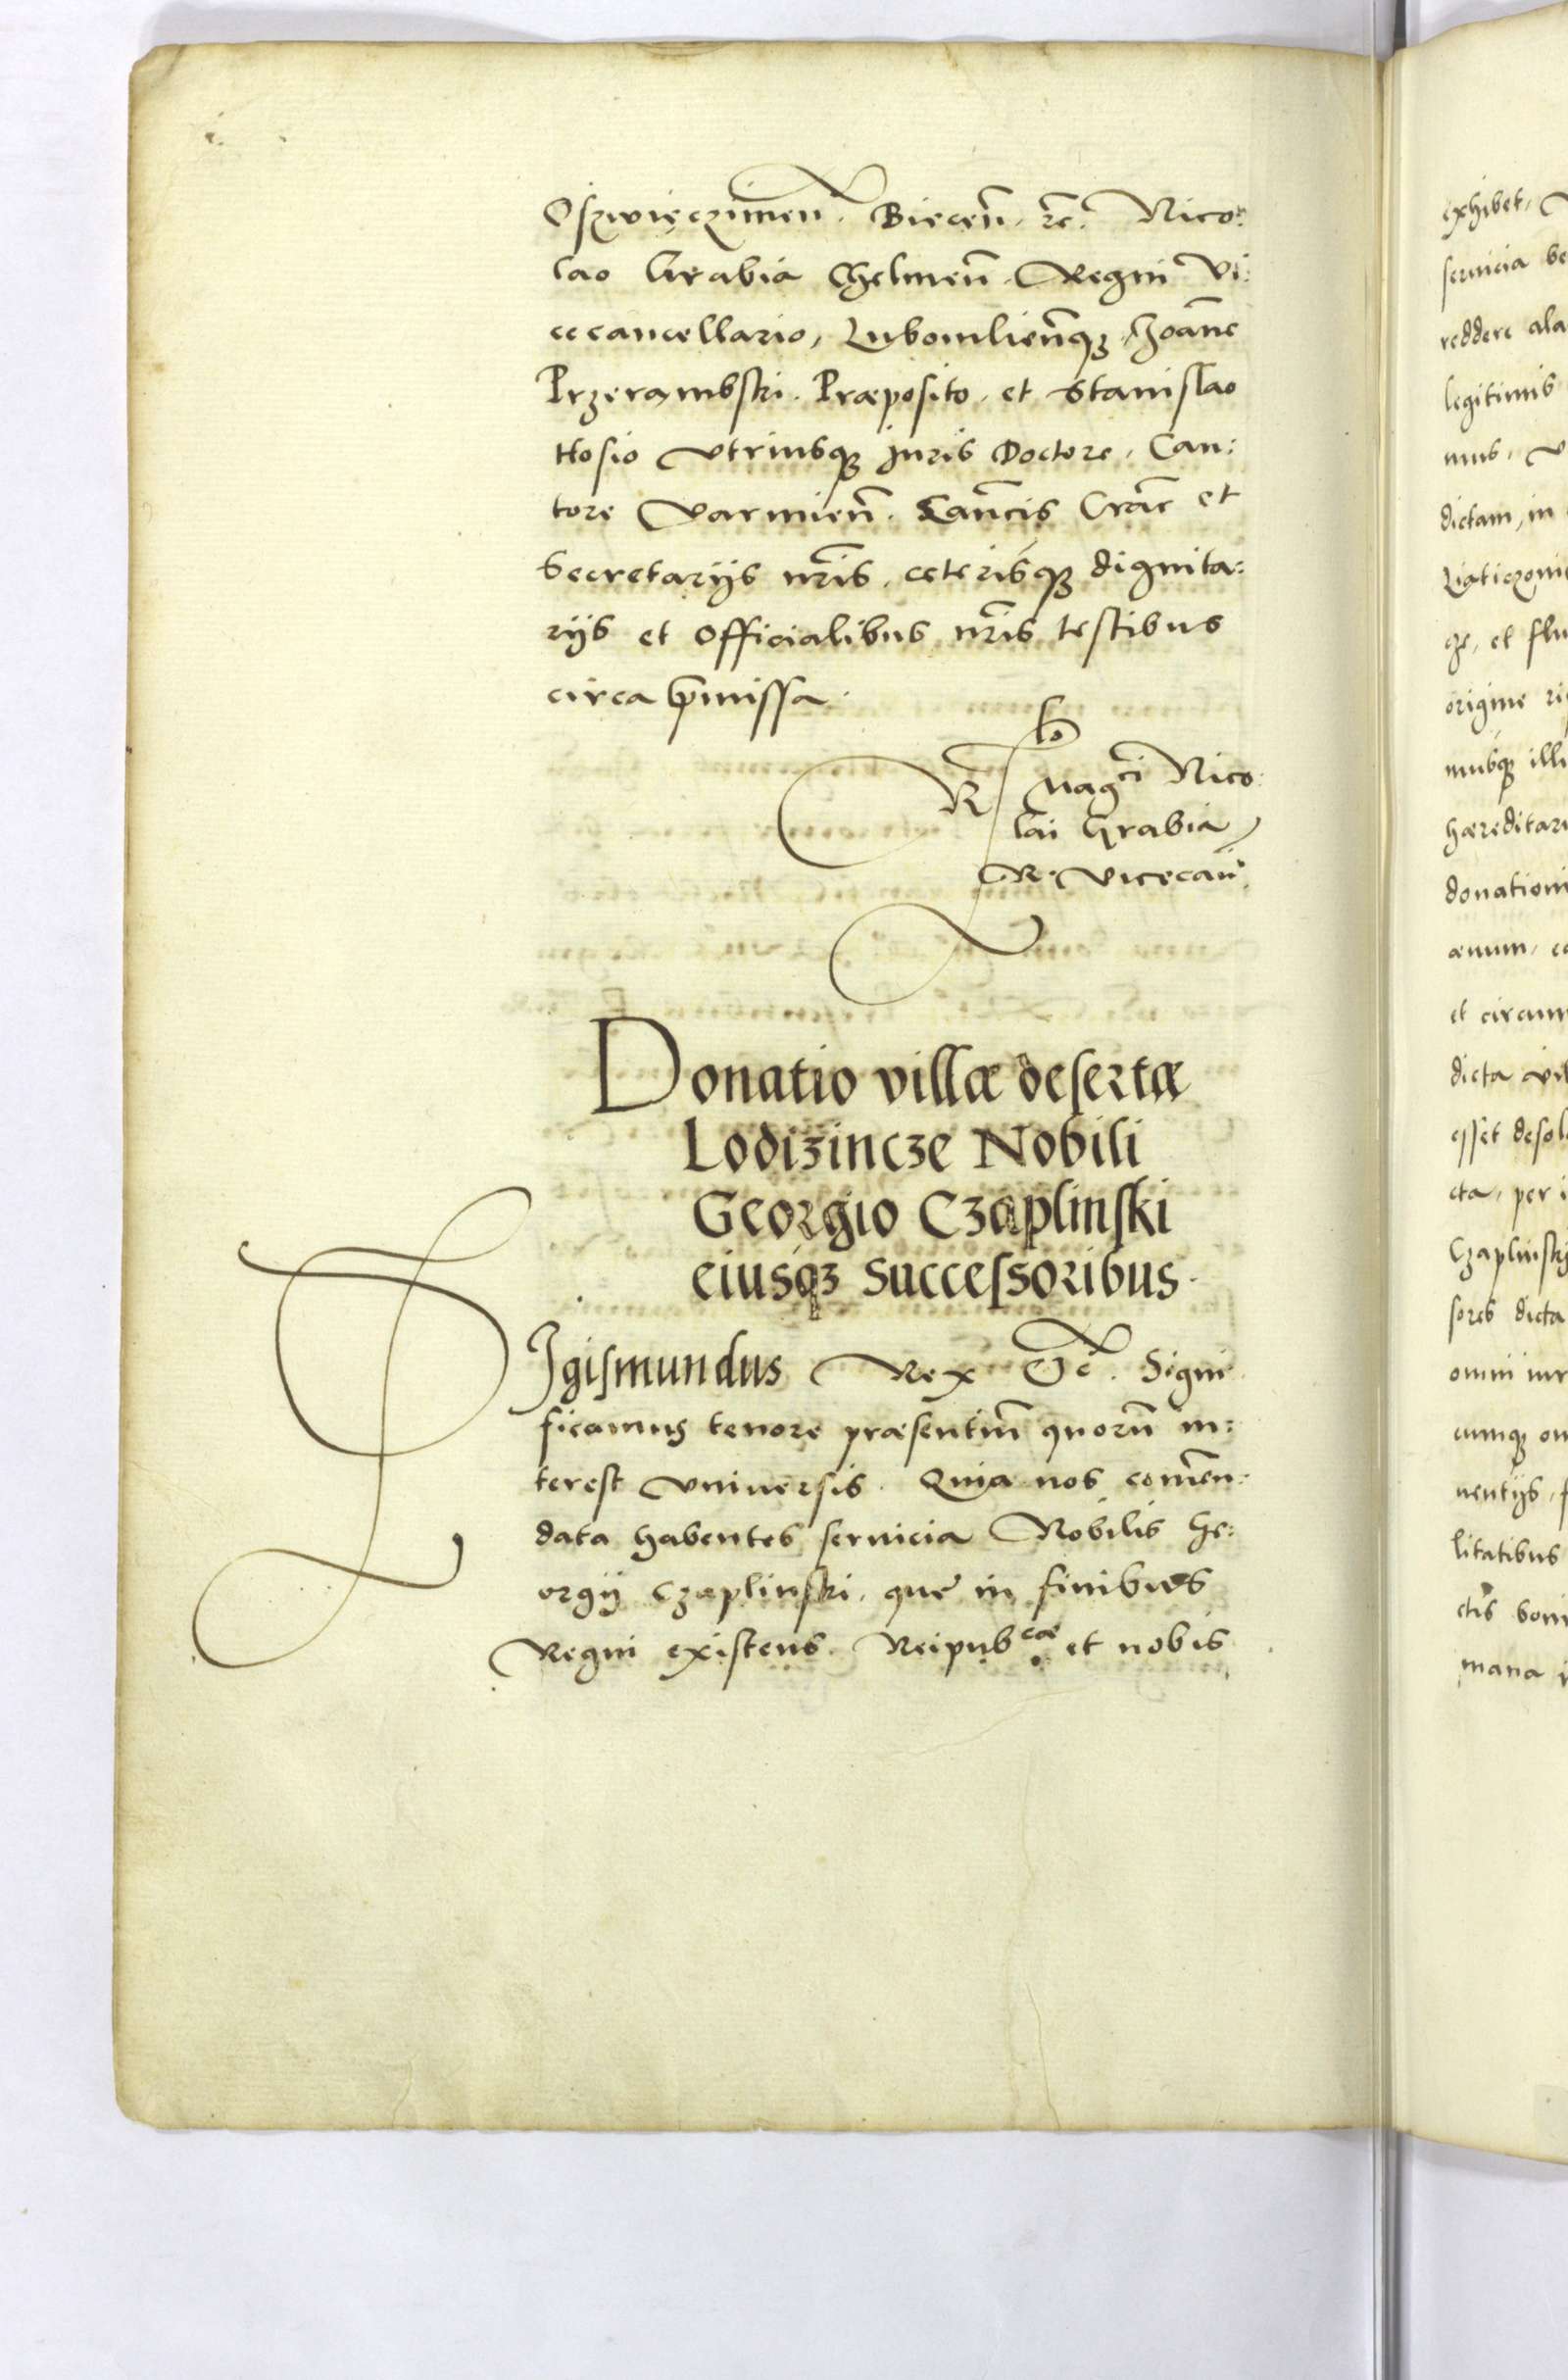 Oszwięczimen̄. Biecen̄. rc̄. Nico:
lao Grabia Chelmen̄. Regni Vi:
cecancellario, Lubomlien̄q3 Joan̄e
Przerambski. Præposito, et Stanislao
Hosio Vtriusq3 Juris Doctore, Can:
tore Varmien̄. Can̄cis Crac̄ et
Secretarijs nr̄is, ceterisq3 dignita:
rijs et officialibus nr̄is testibus
circa p̄missa.
Rlo Magci Nico:
lai Grabia,
R. Vicecan̄.
Donatio villæ desertæ
Lodizincze Nobili
Georgio Czaplinski
eiusq3 Successoribus.
SIgismundus Rex &c̄. Signi
ficamus tenore præsentiū quorū in:
terest Vniuersis. Quia nos com̄en:
data habentes seruicia Nobilis Ge:
orgij Czaplinski, que in finibus
Regni existens. Reipubcæ. et nobis
exhibet,
seruicia be
reddere ala
legitimis
mus,
dictam, in
ge, et flu
origine ri
musq3 illi
hæreditari
donationi
æuum, co
et circum
dicta vil
esset desol
cta, per i
Czaplinski
sores dicta
omni iur
cumq3 om
uentijs, f
litatibus
ctis boni
mana i